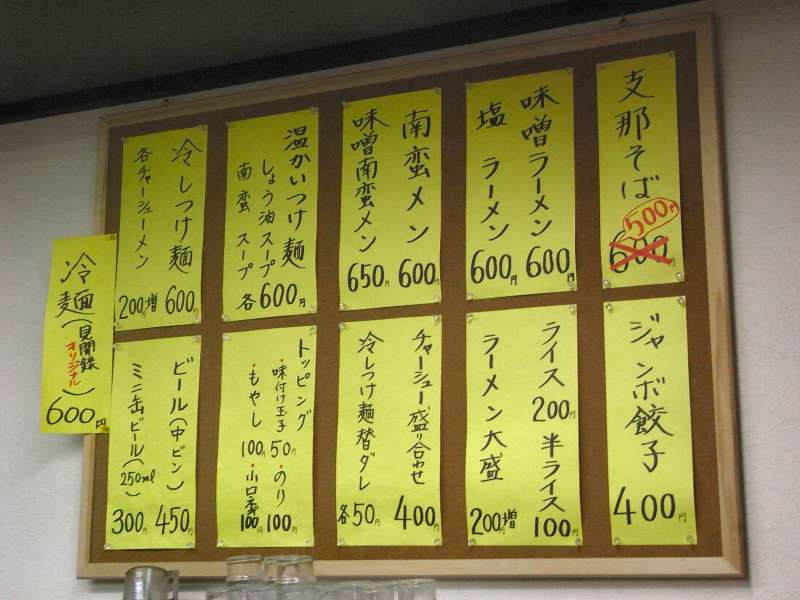 支那そば
500円
600
味噌ラーメン 600円
塩ラーメン 600円
南蛮メン 600円
味噌南蛮メン 650円
温かいつけ麺
しょう油スープ
南蛮スープ
各600円
冷しつけ麺 600円
各チャーシューメン 200円増
冷麺(見聞録オリジナル)
600円
ジャンボ餃子
400円
ライス 200円
半ライス 100円
ラーメン大盛 200円増
チャーシュー盛り合わせ 400円
冷しつけ麺替ダレ 各50円
トッピング
・味付け玉子 50円
・もやし 100円
・のり 100円
100円
ビール(中ビン) 450円
ミニ缶ビール(250ml) 300円